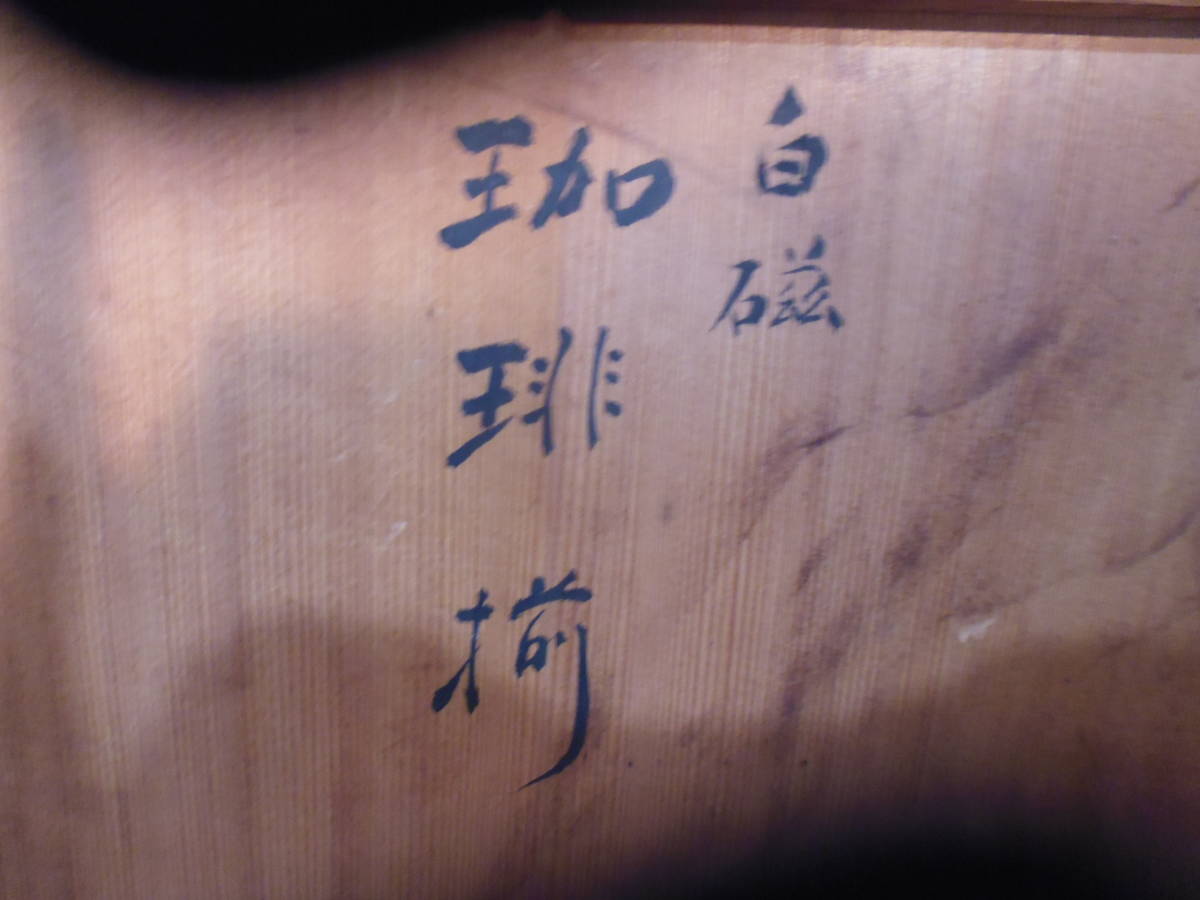 白磁
珈琲揃